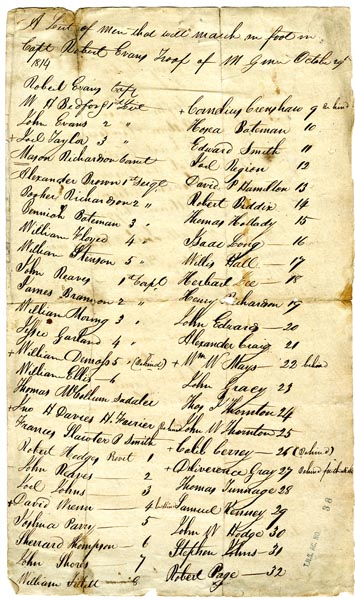 A List of men that will march on foot in
Capt Robert Evans Troop of M Gunr October 29th
1814
Robert Evans Capt
W H Bedford 1st Lieut
John Evans 2 "
+ Joel Taylor 3 "
Mason Richardson Cornet
Alexander Brown 1st Sergt
Booker Richardson 2 "
Bennion Bateman 3 "
William Floyed 4 "
William Stinson 5 "
John Reaves 1st Corpl
James Brannon 2 "
William Moring 3 "
Jesse Garland 4 "
+ William Dimoss 5 " (Behind)
William Ellis 6 "
Thomas McCollum Sadaler
+ Jno H Davies H. Farrier Behind
Frances Slawter B Smith
Robert Hodges Privt 1
John Reaves 2
Joel Johns 3
+ David Wrenn 4 behin
Joshua Parry 5
Sherrard Thompson 6
John Shores 7
William 8
+ Cornelius Crenshaw 9 Behind
Hosea Bateman 10
Edward Smith 11
Joel Region 12
David P Hamilton 13
Robert Viddix 14
Thomas Hollady 15
Isaac Long — 16
Willis Hall — 17
Herbart Lee — 18
Henry Richardson 19
John Edward — 20
Alexander Craig 21
+ Wm W Mays — 22 behind
John Gracey 23
Thos T Thornton 24
John W Thornton 25
+ Caleb Cerney — 26 (Behind)
+ Deliverence Gray 27 Behind
Thomas Tunnage 28
Samuel Kenney 29
John N Hodge 30
Stephen Johns — 31
Robert Page — 32
T.S.L. AC. NO. 38